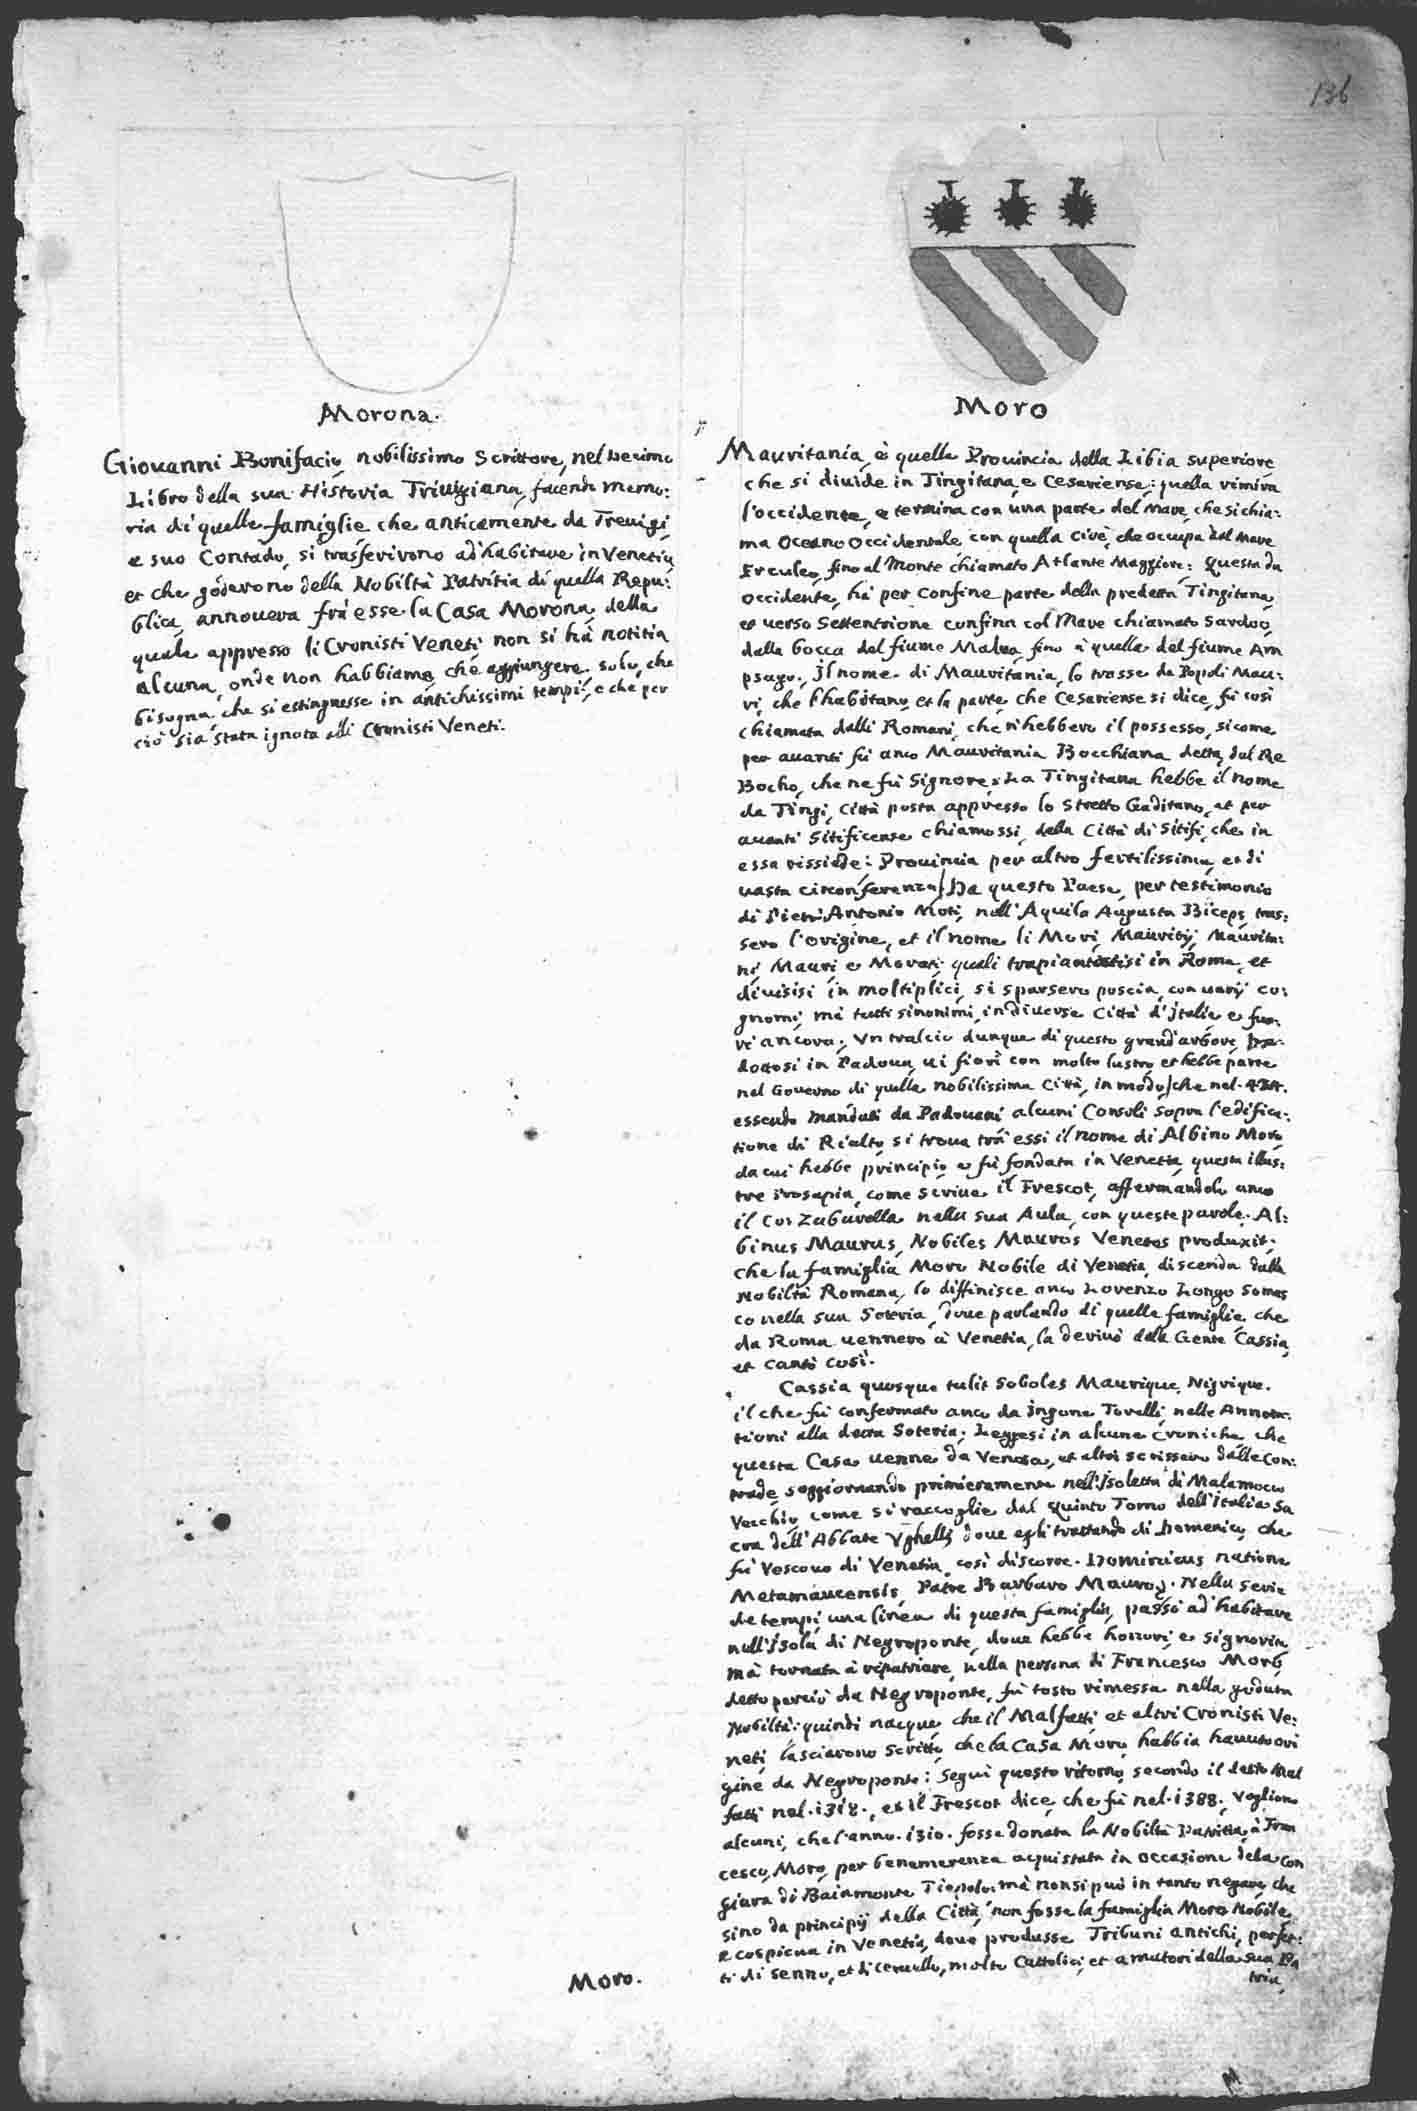 136
Morona.
Giouanni Bonifacio, nobilissimo Scrittore, nel Decimo
Libro della sua Historia Triuigiana, facendo memo:
ria di quelle famiglie che anticamente da Treuigi,
e suo Contado, si trasferirono ad habitare in Venetia,
et che goderono della Nobiltà Patritia di quella Repu:
blica, annouera frà esse la Casa Morona, della
quale appresso li Cronisti Veneti non si hà notitia
alcuna, onde non habbiamo che aggiungere solo, che
bisogna che si estinguesse in antichissimi tempi, e che per
ciò sia stata ignota alli Cronisti Veneti.
Moro.
Moro
Mauritania, è quella Prouincia della Libia superiore
che si diuide in Tingitana, e Cesariense: quella rimira
l'occidente, e termina con una parte del Mare, che si chia:
ma Oceano Occidentale con quella cioè, che occupa dal Mare
Erculeo, fino al Monte chiamato Atlante Maggiore: Questa da
occidente, hà per confine parte della predetta Tingitana,
et uerso Settentrione confina col Mare chiamato Sardoo,
dalla bocca del fiume Malua, fino à quella del fiume Am
psago. Il nome di Mauritania, lo trasse da Popoli Mau:
ri, che l'habitano, et la parte, che Cesariense si dice, fù così
chiamata dalli Romani, che n'hebbero il possesso, sicome
per auanti fù anco Mauritania Bocchiana detta, dal Re
Bocho, che ne fù Signore: La Tingitana hebbe il nome
da Tingi, Città posta appresso lo Stretto Gaditano, et per
auanti Sitificense chiamossi, della Città di Sitifi, che in
essa rissiede: Prouincia per altro fertilissima, et di
uasta circonferenza. Da questo Paese, per testimonio
di Pietr'Antonio Moti, nell'Aquila Augusta Biceps, tras:
sero l'origine, et il nome li Mori, Mauritij, Maurita:
ni, Mauri e Morati: quali trapiantatisi in Roma, et
diuisisi in moltiplici, si sparsero poscia, con uarij co:
gnomi, mà tutti sinonimi, in diuerse Città d'Italia e fuo:
ri ancora. Vn tralcio dunque di questo grand'arbore,
dottosi in Padoua, ui fiorì con molto lustro, et hebbe parte
nel Gouerno di quella nobilissima Città, in modo, che nel
essendo mandati da Padouani alcuni Consoli sopra l'edifica:
tione di Rialto, si troua trà essi il nome di Albino Moro,
da cui hebbe principio, e fù fondata in Venetia questa illus:
tre Prosapia, come scriue il Frescot, affermandolo anco
il Co: Zabarella nella sua Aula, con queste parole. Al:
binus Maurus, Nobiles Mauros Venetos produxit:
che la famiglia Moro Nobile di Venetia, discenda dalla
Nobiltà Romana, lo diffinisce anco Lorenzo Longo Somas
co nella sua Soteria, doue parlando di quelle famiglie, che
da Roma uennero à Venetia, la deriuò dalla Gente Cassia,
et cantò così.
Cassia quosque tulit soboles Maurique, Nigrique.
il che fù confermato anco da Ingone Torelli, nelle Annota:
tioni alla detta Soteria. Leggesi in alcune Croniche che
questa Casa uenne da et altri scrissero dalle Con:
trade, soggiornando primieramente nell'Isoletta di Malamocco
Vecchio, come si raccoglie dal Quinto Tomo dell'Italia Sa
cra dell'Abbate Vghelli, doue egli trattando di Domenico, che
fù Vescouo di Venetia, così discorre. Dominicus natione
Metamaucensis, Patre Barbaro Mauro. Nella serie
de tempi, una linea di questa famiglia, passò ad habitare
nell'Isola di Negroponte, doue hebbe honori, e Signoria,
mà tornata à ripatriare, nella persona di Francesco Moro,
detto perciò da Negroponte, fù tosto rimessa nella goduta
Nobiltà: quindi nacque, che il Malfatti et altri Cronisti Ve:
neti, lasciarono scritto, che la Casa Moro, habbia hauuto ori
gine da Negroponte: Seguì questo ritorno, secondo il detto Mal
fatti nel. 1318., et il Frescot dice, che fù nel. 1388., Vogliono
alcuni, che l'anno. 1310. fosse donata la Nobiltà Patritia, à Fran
cesco Moro, per benemerenza acquistata in occasione dela con
giura di Baiamonte Tiepolo: mà non si può in tanto negare, che
sino da principij della Città, non fosse la famiglia Moro Nobile,
e cospicua in Venetia, doue produsse Tribuni antichi, perfet:
ti di senno, et di ceruello, molto Cattolici, et amatori della sua Pa
tria,
M